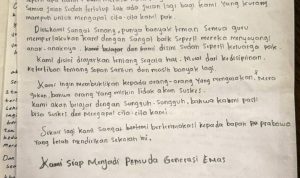 semua jalan sudah tertutup tak ada jalan lagi bagi kami yang kurang
mampuh untuk mengapai cita-cita kami pak
Disikami Sangat Senang, punya banyak teman semua guru
memperlakukan kami dengan sangat baik seperti mereka menyayangi
anak-anaknya. kami belajar dan kami disini sudah seperti keluarga pak
Kami disini diajarkan tentang segala hal. Mulai dari kedisiplinan,
Ketertiban tentang sopan santun dan masih banyak lagi.
Kami ingin membuktikan kepada orang-orang yang mengatakan
bahwa orang yang miskin tidak akan sukses.
Kami akan belajar dengan sungguh-sungguh, bahwa kami pasti
bisa sukses dan mengapai cita-cita kami.
Sekali lagi kami sangat berterimakasi kepada bapak prabowo
Yang telah mendirikan sekolah ini.
Kami Siap Menjadi Pemuda Generasi Emas